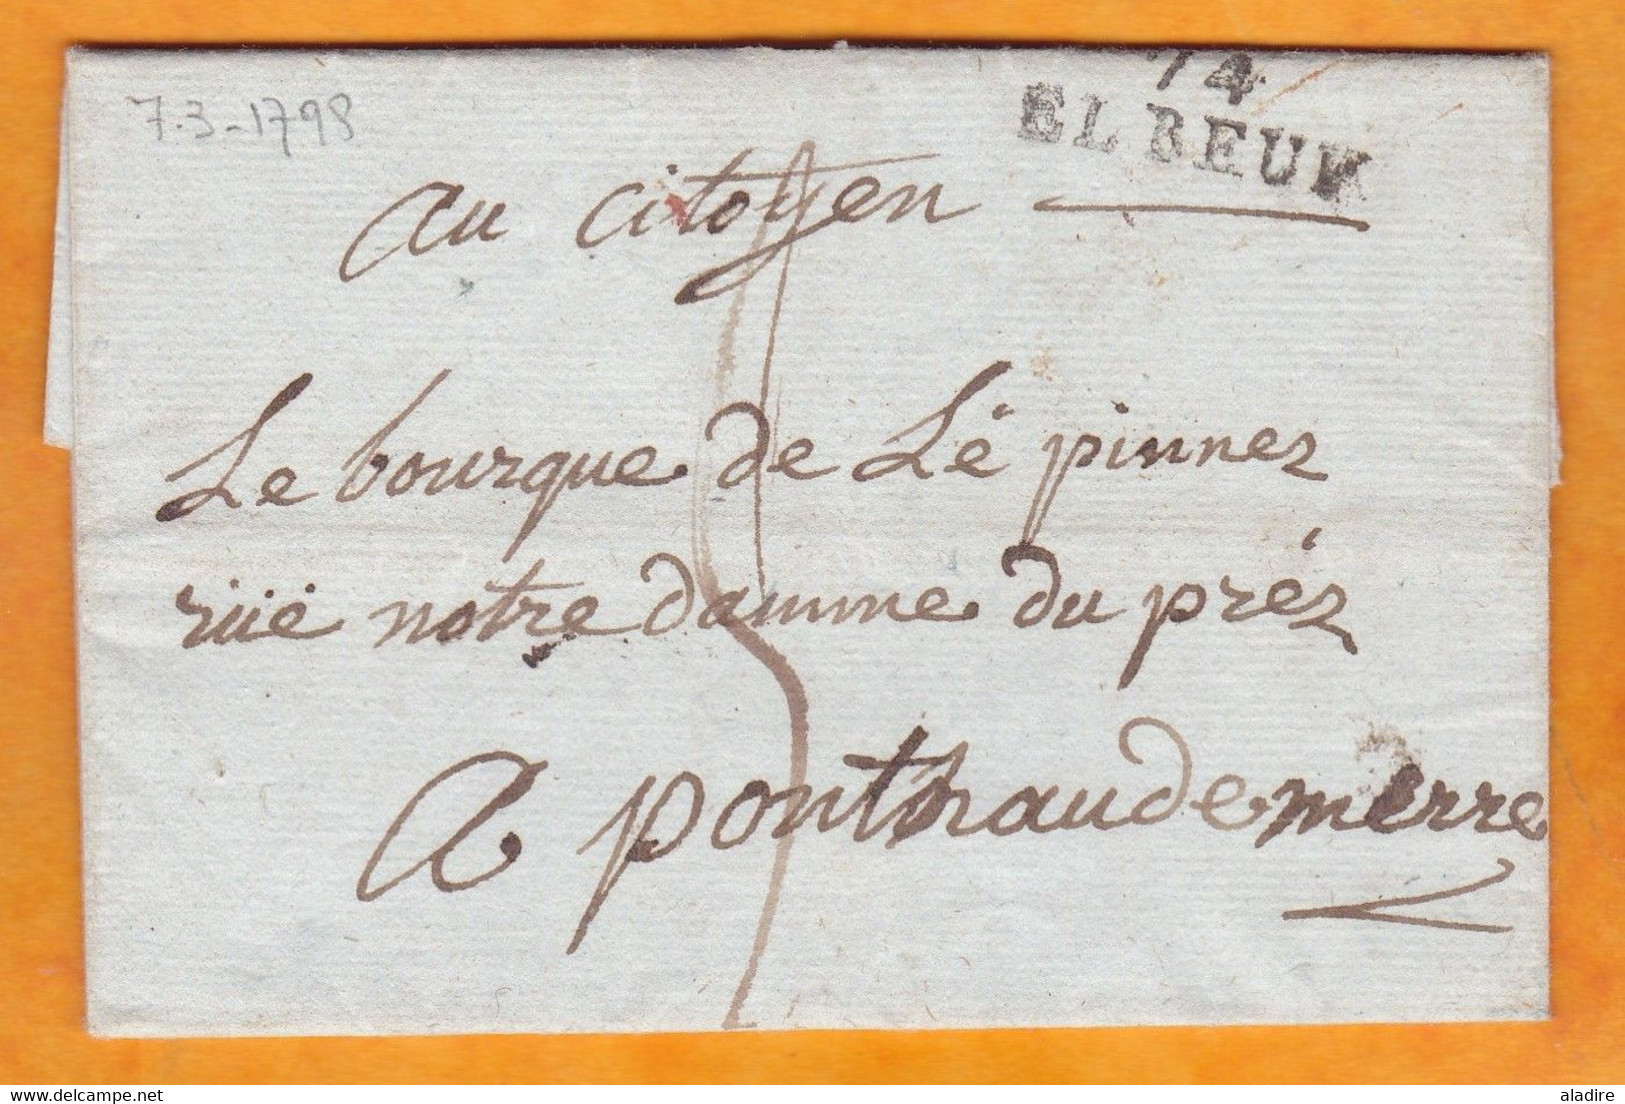 7.3-1798
74
ELBEUF
au citoyen
Le bourque de Lé pinner
rüe notre damme du prér
A ponthaudemerre
delcampe.net
aladire